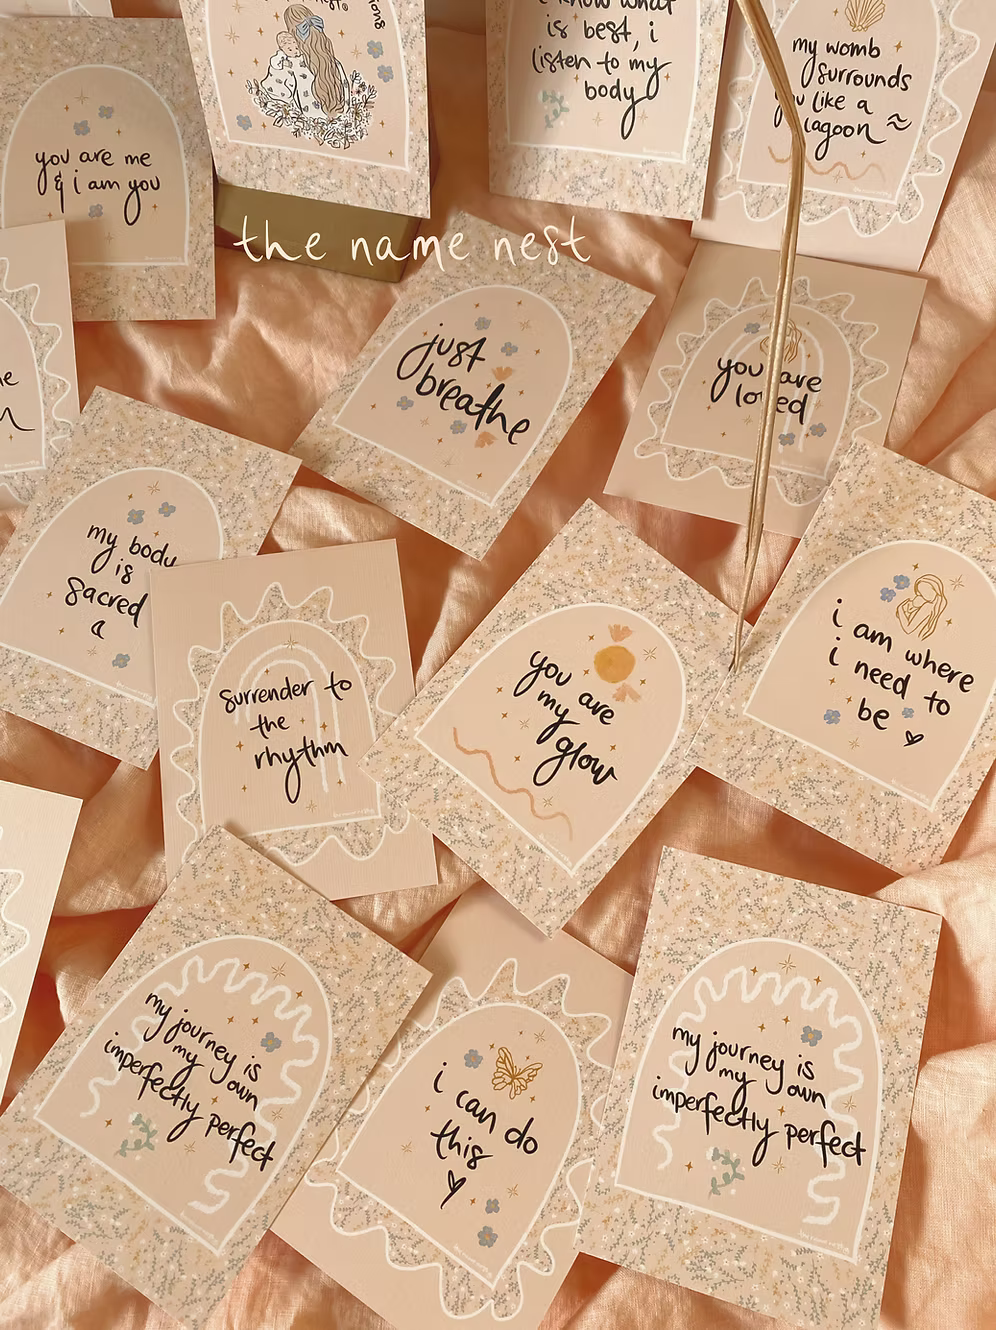 i know what
is best, i
listen to my
body
my womb
surrounds
you like a
lagoon
you are me
& i am you
the name nest
just
breathe
you are
loved
my body
is
sacred
surrender to
the
rhythm
you are
my
glow
i am where
i need to
be
my journey is
my own
imperfectly perfect
i can do
this
my journey is
my own
imperfectly perfect